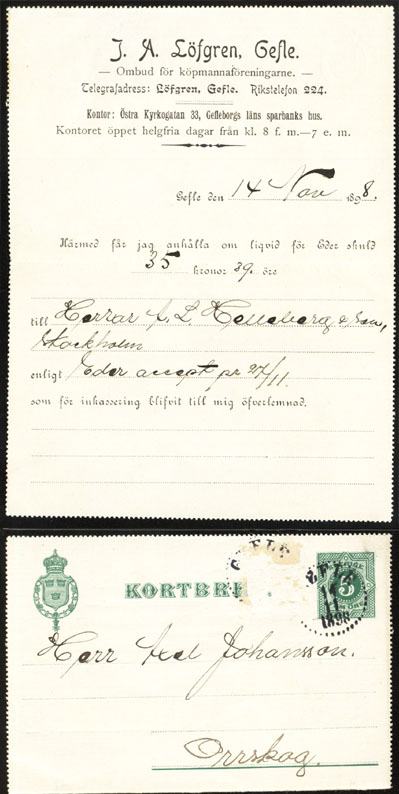 J. A. Löfgren, Gefle.
— Ombud för köpmannaföreningarne. —
Telegrafadress: Löfgren, Gefle. Rikstelefon 224.
Kontor: Östra Kyrkogatan 33, Gefleborgs läns sparbanks hus.
Kontoret öppet helgfria dagar från kl. 8 f. m.—7 e. m.
Gefle den 14 Nov 1898.
Härmed får jag anhålla om liqvid för Eder skuld
35 kronor 39 öre
till Herrar A. L. & Son,
Stockholm
enligt Eder accept pr 27/11.
som för inkassering blifvit till mig öfverlemnad.
KORTBREF
GEFLE
GEFLE
14
11
1898
5
Herr Axel Johansson.